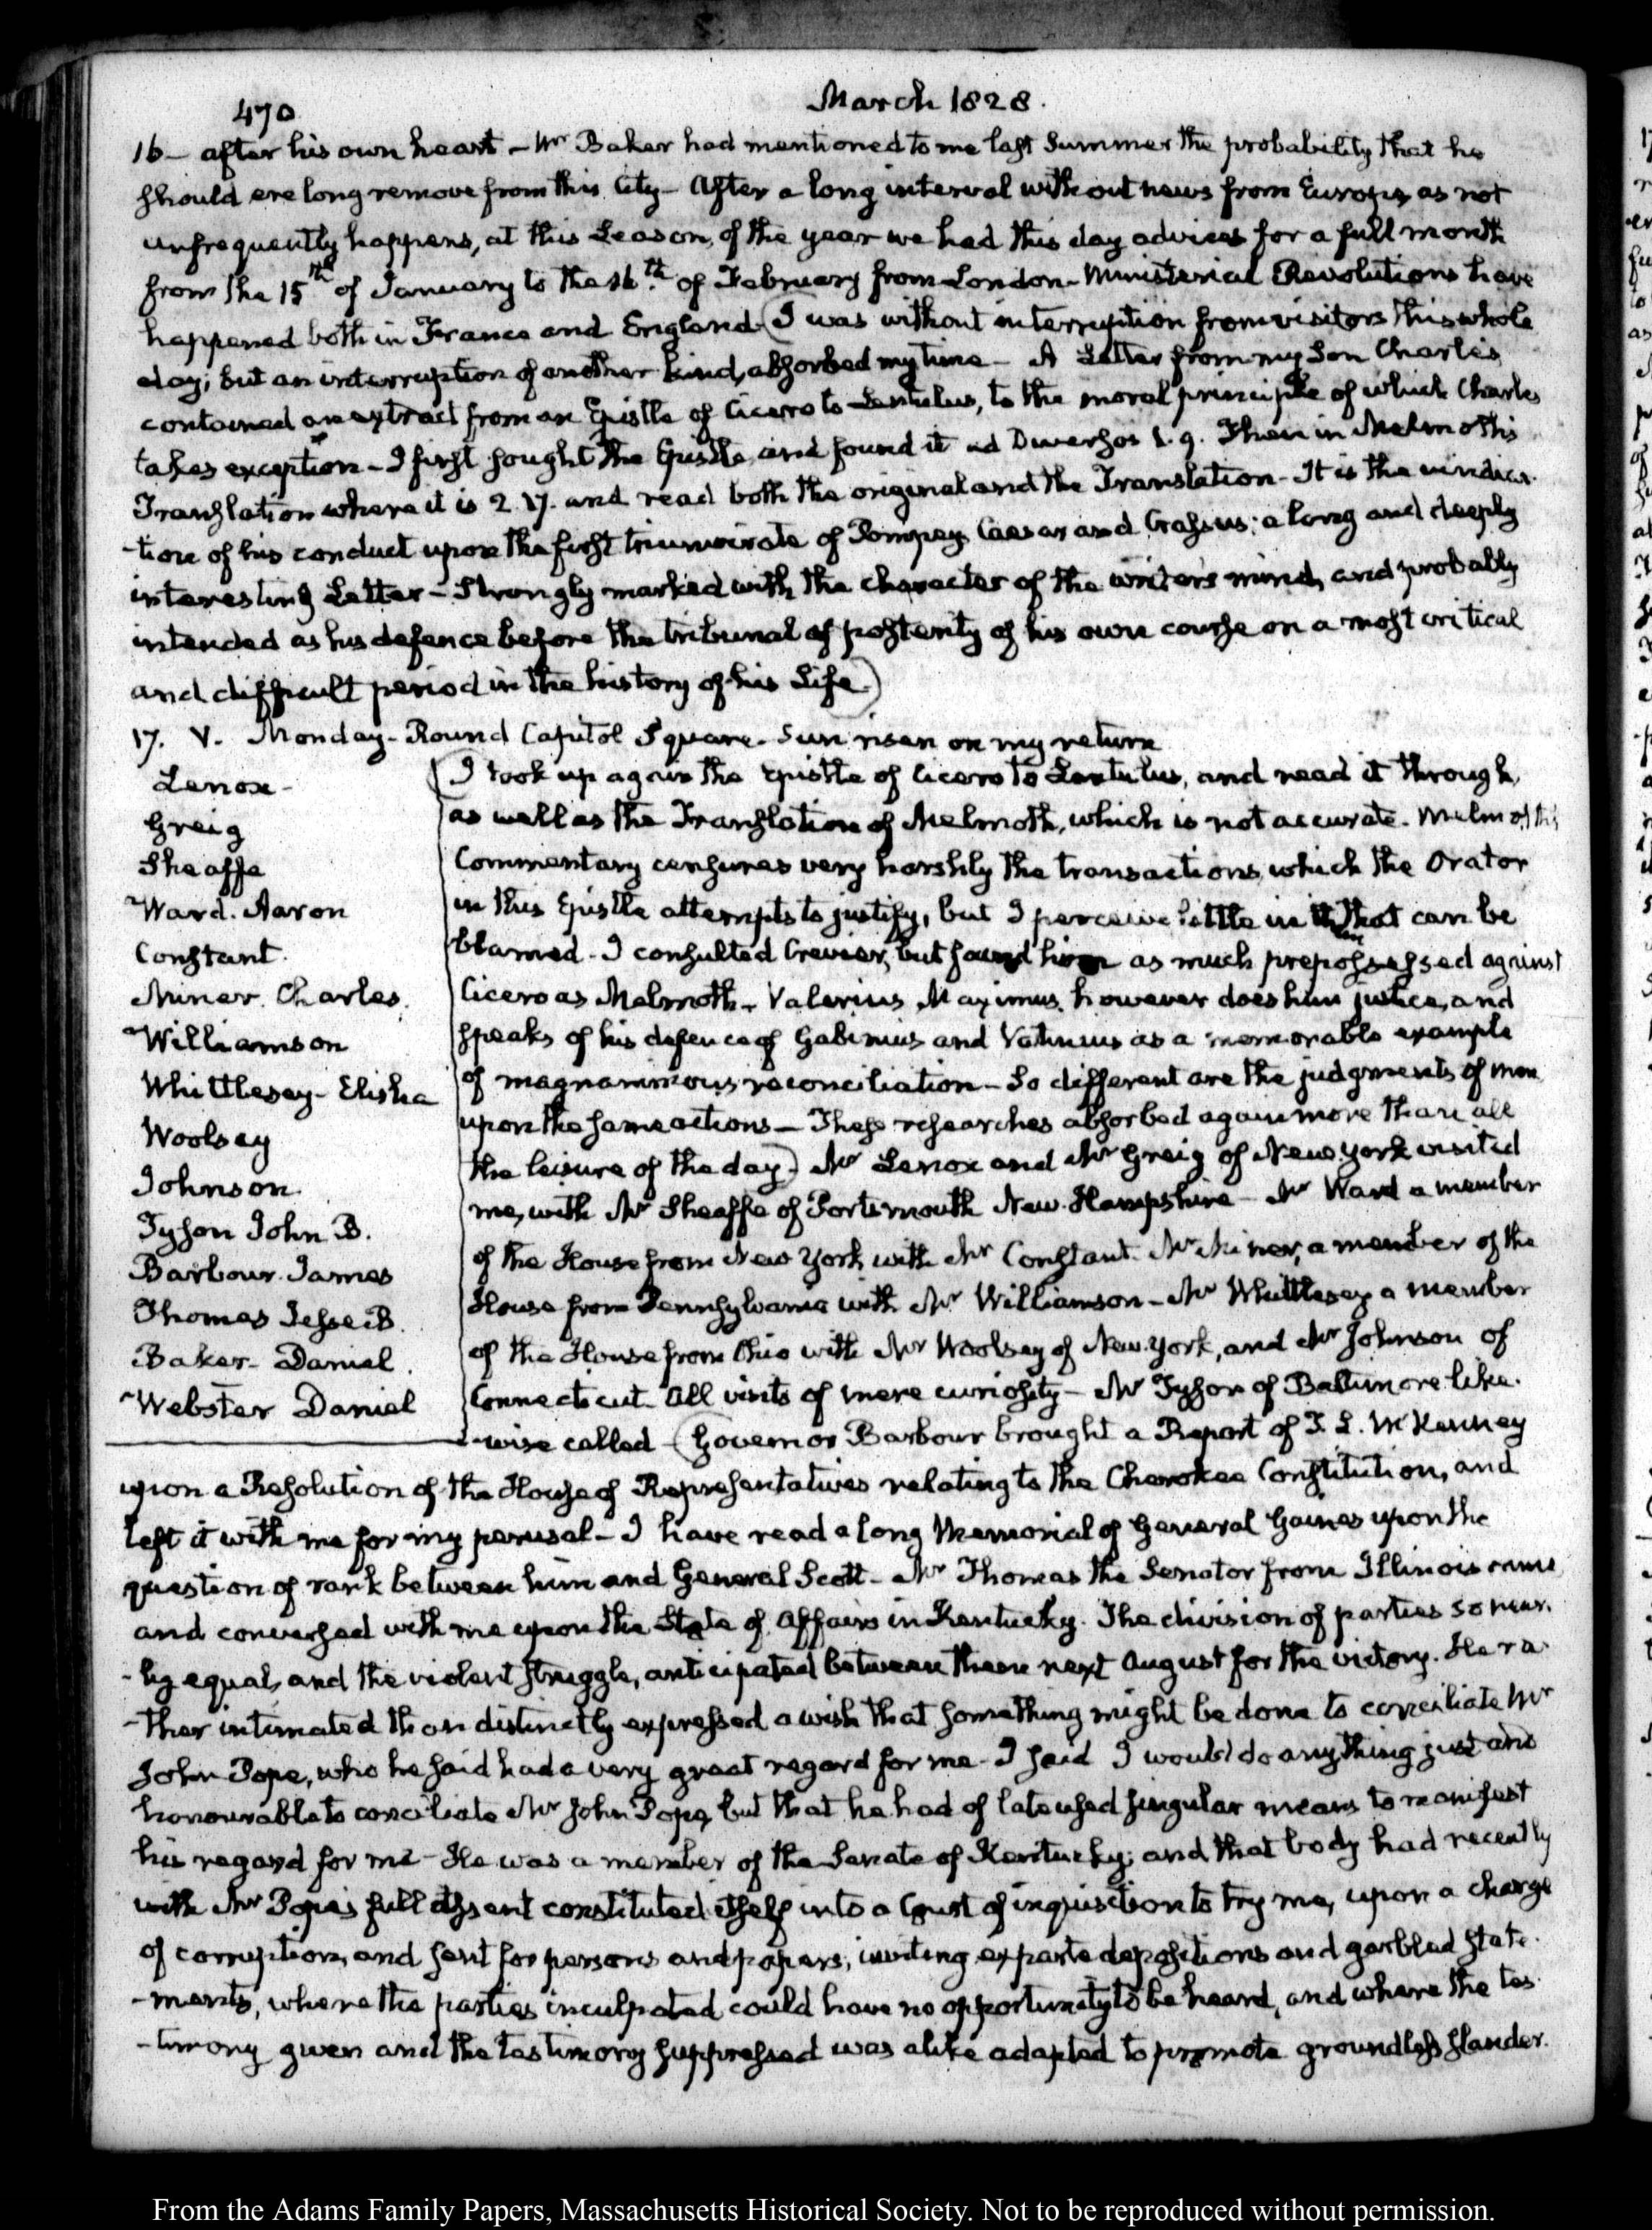 470
March 1828.
16— after his own heart — Mr Baker had mentioned to me last Summer the probability that he
should ere long remove from this City — After a long interval without news from Europe, as not
unfrequently happens, at this Season, of the year we had this day advices for a full month
from the 15th of January to the 16th of February from London — Ministerial Revolutions have
happened both in France and England (I was without interruption from visitors this whole
day; but an interruption of another kind, absorbed my time — A Letter from my Son Charles
contained an extract from an Epistle of Cicero to Lentulus, to the moral principle of which Charles
takes exception — I first sought the Epistle, and found it ad Diversos 1. 9. Then in Melmoth's
Translation where it is 2. 17. and read both the original and the Translation — It is the vindica-
-tion of his conduct upon the first triumvirate of Pompey Caesar and Crassus: a long and deeply
interesting Letter — Strongly marked with the character of the writer's mind, and probably
intended as his defence before the tribunal of posterity of his own course on a most critical
and difficult period in the history of his Life.)
17. V. Monday — Round Capitol Square — Sun risen on my return
Lenox —
Greig
Sheaffe
Ward. Aaron
Constant.
Miner. Charles.
Williamson
Whittlesey — Elisha
Woolsey
Johnson
Tyson John B.
Barbour. James
Thomas Jesse B.
Baker — Daniel.
Webster Daniel
(I took up again the Epistle of Cicero to Lentulus, and read it through,
as well as the Translation of Melmoth, which is not accurate. Melmoth's
Commentary censures very harshly the transactions, which the Orator
in this Epistle attempts to justify, but I perceive little in them that can be
blamed — I consulted Crevier, but found him as much prepossessed against
Cicero as Melmoth — Valerius Maximus, however does him justice, and
speaks of his defence of Gabinius and Vatinius as a memorable example
of magnanimous reconciliation — So different are the judgments of men
upon the same actions — These researches absorbed again more than all
the leisure of the day.) Mr Lenox and Mr Greig of New York visited
me, with Mr Sheaffe of Portsmouth New Hampshire — Mr Ward a member
of the House from New York with Mr Constant. Mr Miner, a member of the
House from Pennsylvania with Mr Williamson — Mr Whittlesey a member
of the House from Ohio with Mr Woolsey of New York, and Mr Johnson of
Connecticut. All visits of mere curiosity — Mr Tyson of Baltimore like-
-wise called — (Governor Barbour brought a Report of T. L. McKenney
upon a Resolution of the House of Representatives relating to the Cherokee Constitution, and
left it with me for my perusal — I have read a long Memorial of General Gaines upon the
question of rank between him and General Scott — Mr Thomas the Senator from Illinois came
and conversed with me upon the State of Affairs in Kentucky. The division of parties so near-
-ly equal, and the violent struggle, anticipated between them next August for the victory. He ra-
-ther intimated than distinctly expressed a wish that something might be done to conciliate Mr
John Pope, who he said had a very great regard for me — I said I would do any thing just and
honourable to conciliate Mr John Pope, but that he had of late used singular means to manifest
his regard for me — He was a member of the Senate of Kentucky; and that body had recently
with Mr Pope's full assent constituted itself into a Court of inquisition to try me, upon a charge
of corruption, and sent for persons and papers; inviting ex parte depositions and garbled state-
-ments, where the parties inculpated could have no opportunity to be heard, and where the tes-
-timony given and the testimony suppressed was alike adapted to promote groundless slander.
From the Adams Family Papers, Massachusetts Historical Society. Not to be reproduced without permission.